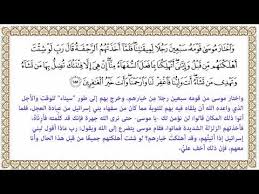 وَاخْتَارَ مُوسَىٰ قَوْمَهُ سَبْعِينَ رَجُلًا لِّمِيقَاتِنَا فَلَمَّا أَخَذَتْهُمُ الرَّجْفَةُ قَالَ رَبِّ لَوْ شِئْتَ
أَهْلَكْتَهُم مِّن قَبْلُ وَإِيَّايَ أَتُهْلِكُنَا بِمَا فَعَلَ السُّفَهَاءُ مِنَّا إِنْ هِيَ إِلَّا فِتْنَتُكَ تُضِلُّ بِهَا مَن تَشَاءُ
وَتَهْدِي مَن تَشَاءُ أَنتَ وَلِيُّنَا فَاغْفِرْ لَنَا وَارْحَمْنَا وَأَنتَ خَيْرُ الْغَافِرِينَ ١٥٥
واختار موسى من قومه سبعين رجلا من خيارهم، وخرج بهم إلى طور "سيناء" للوقت والأجل
الذي واعده الله أن يلقاه فيه بهم للتوبة مما كان من سفهاء بني إسرائيل من عبادة العجل، فلما
أتوا ذلك المكان قالوا: لن نؤمن لك -يا موسى- حتى نرى الله جهرة فإنك قد كلمته فأرناه،
فأخذتهم الزلزلة الشديدة فماتوا، فقام موسى يتضرع إلى الله ويقول: رب ماذا أقول لبني
إسرائيل إذا أتيتهم، وقد أهلكت خيارهم؟ لو شئت أهلكتهم جميعا من قبل هذا الحال وأنا
معهم، فإن ذلك أخف عليّ،